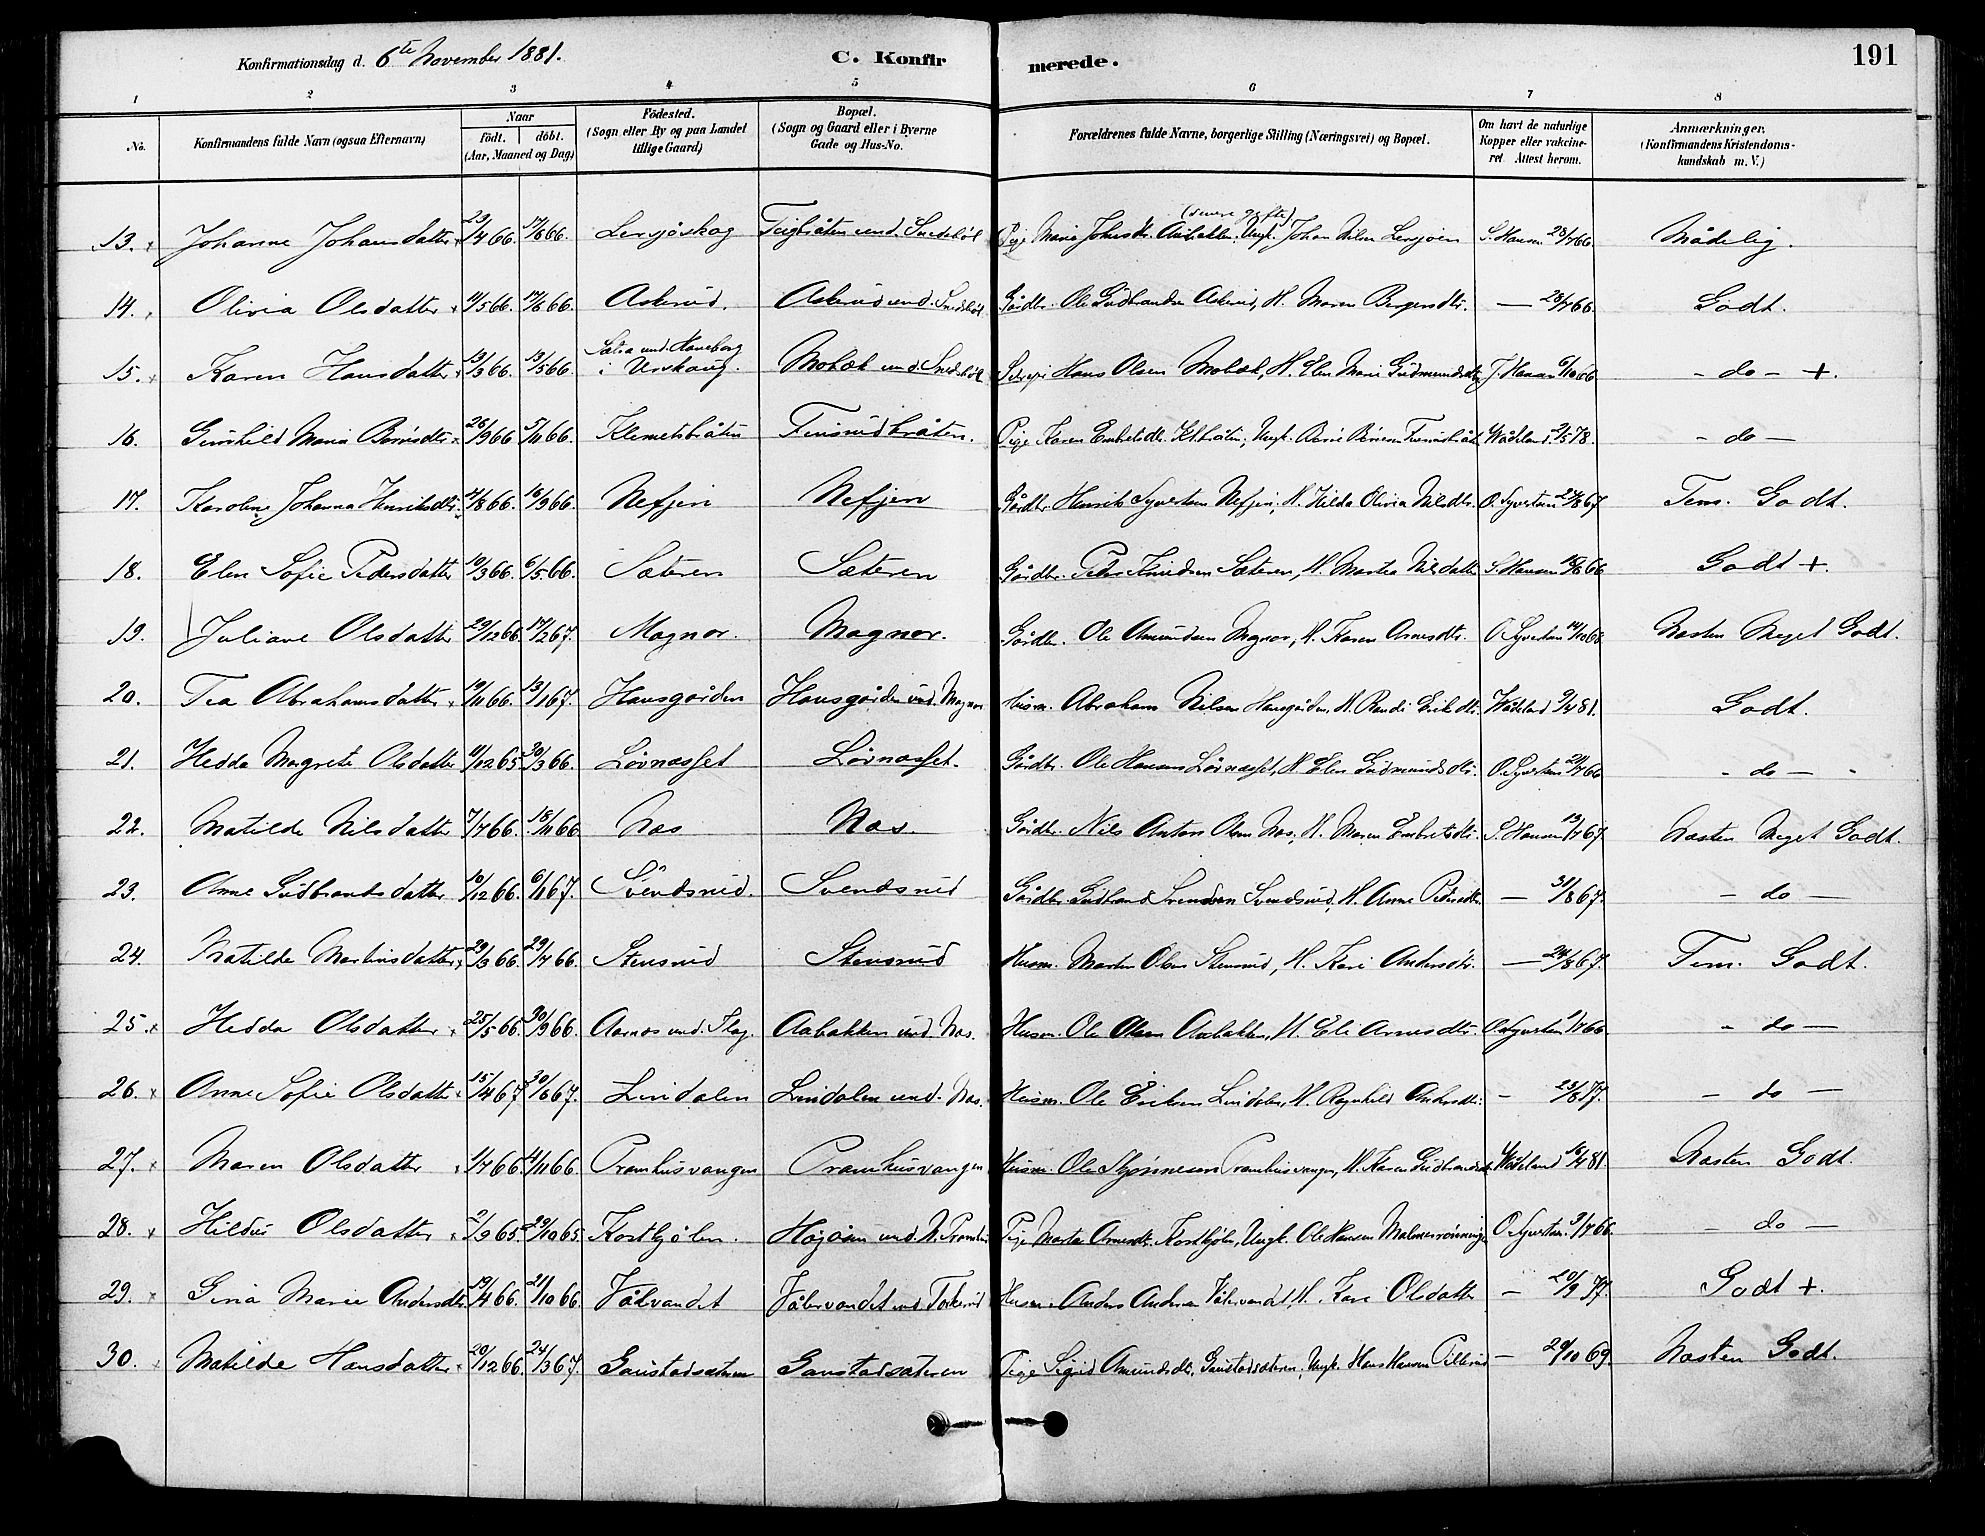 Konfirmationsdag d. 6te November 1881.
C. Konfir
merede.
191
1 2 3 4 5 6 7 8
No.
Konfirmandens fulde Navn (ogsaa Efternavn)
Naar
født. døbt.
(Aar, Maaned og Dag)
Födested.
(Sogn eller By og paa Landet
tillige Gaard)
Bopæl.
(Sogn og Gaard eller i Byerne
Gade og Hus-No.
Forældrenes fulde Navne, borgerlige Stilling (Næringsvei) og Bopæl.
Om havt de naturlige
Kopper eller vakcine-
ret Attest herom.
Anmærkninger.
(Konfirmandens Kristendoms-
kundskab m. V.)
(senere gifte)
13. Johanne Johansdatter 23/4 66. 17/6 66. Lersjöskog Teigbråten und. Snedsböl Pige Maria Johnsdtr. Aabakken, Ungk. Johan Nilsen Lersjöen S. Hansen 28/7 66 Mådelig.
14. Olivia Olsdatter 11/5 66. 17/6 66. Askerud. Askerud und. Snedsböl Gårdbr. Ole Gudbrandsen Askerud, H. Maren Bergersdtr. — 28/7 66. Godt.
15. Karen Hansdatter 13/3 66. 13/5 66. Sætra und. Haneborg
i Urskoug. Mobæk und. Snedsböl Hans Olsen Mobæk, H. Elen Marie Gudmundsdtr. J. Hansen 6/10 66 - do - +.
16. Gunhild Maria 26/9 66. 5/11 66. Klemetsbråten Finsrudbråten. Pige Karen Embretsdtr. Ungk. Wådeland 2/5 78. - do -
17. Karoline Johanna Henriksdtr. 4/8 66. 16/9 66. Nefjen Nefjen Gårdbr. Henrik Syversen Nefjen, H. Hilda Olivia Nilsdtr. O. Syvertsen 24/8 67 Tem. Godt.
18. Elen Sofie Pedersdatter 10/3 66. 6/5 66. Sæteren Sæteren Gårdbr. Peder Knudsen Sæteren, H. Martea Nilsdatter S. Hansen 18/8 66 Godt +.
19. Juliane Olsdatter 29/12 66. 17/2 67. Magnor. Magnor. Gårdbr. Ole Amundsen Magnor, H. Karen Arnesdtr. O. Syvertsen 14/10 66. Næsten Meget Godt.
20. Tea Abrahamsdatter 19/11 66. 13/1 67. Hansgården Hansgården und. Magnor Husm. Abraham Nilsen Hansgården, H. Randi Eriksdtr. Wådeland 9/4 81. Godt.
21. Hedda Margrete Olsdatter 11/12 65. 30/3 66. Lövnasset Lövnasset. Gårdbr. Ole Hansen Lövnasset, H. Elen Gudmundsdtr. O. Syvertsen 21/7 66 - do -
22. Matilde Nilsdatter 7/7 66. 18/11 66. Næs Næs. Gårdbr. Nils Anton Olsen Næs, H. Maren Embretsdtr. S. Hansen 13/7 67. Næsten Meget Godt.
23. Anne Gudbrandsdatter 10/12 66. 6/1 67. Svendsrud. Svendsrud Gårdbr. Gudbrand Svendsen Svendsrud, H. Anne Pedersdtr. — 31/8 67. - do -
24. Matilde Martinsdatter 29/3 66. 29/7 66. Stensrud Stensrud Husm. Martin Olsen Stensrud, H. Kari Andersdtr. — 24/8 67. Tem. Godt.
25. Hedda Olsdatter 25/5 66. 30/9 66. Aarnæs und. Aabakken und. Næs. Husm. Ole Olsen Aabakken, H. Eli Arnesdtr. O. Syvertsen 1/7 66 - do -
26. Anne Sofie Olsdatter 15/4 67. 30/6 67. Lindalen Lindalen und. Næs. Husm. Ole Eriksen Lindalen, H. Ragnhild Andersdtr. - 23/8 77. - do -
27. Maren Olsdatter 1/7 66. 4/11 66. Pramhusvangen Pramhusvangen Husm. Ole Pramhusvangen, H. Karen Gudbrandsdtr. Wådeland 16/4 81. Næsten Godt.
28. Hildus Olsdatter 2/9 65. 29/10 65. Kostbjölen. Högåsen und. N. Pramhus Pige Marte Arnesdtr. Kostbjölen, Ungk. Ole Hansen Malmerrönningen O. Syvertsen 3/7 66. - do -
29. Gina Marie Andersdtr. 19/4 66. 21/10 66. Våkvandet und. Torkerud Husm. Anders Andersen H. Kari Olsdatter - 20/9 77. Godt +.
30. Matilde Hansdatter 20/12 66. 24/3 67. Gaustadsæteren Gaustadsæteren Pige Sigrid Amundsdtr. Gaustadsæteren, Ungk. Hans Hansen Pillerud - 29/10 69. Næsten Godt.